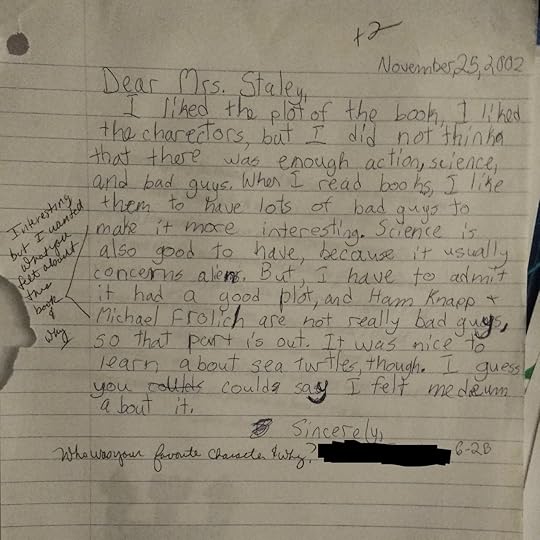 +2
November,25,2002
Dear Mrs. Staley,
I liked the plot of the book, I liked
the charectors, but I did not think
that there was enough action, science,
and bad guys. When I read books, I like
them to have lots of bad guys to
make it more interesting. Science is
also good to have, because it usually
concerns aliens. But, I have to admit
it had a good plot, and Ham Knapp +
Michael Frolich are not really bad guys,
so that part is out. It was nice to
learn about sea turtles, though. I guess
you could say I felt medeium
about it.
Sincerely,
6-2B
Interesting
but I wanted
what you
felt about
this
book
&
why
Who was your favorite character & why?